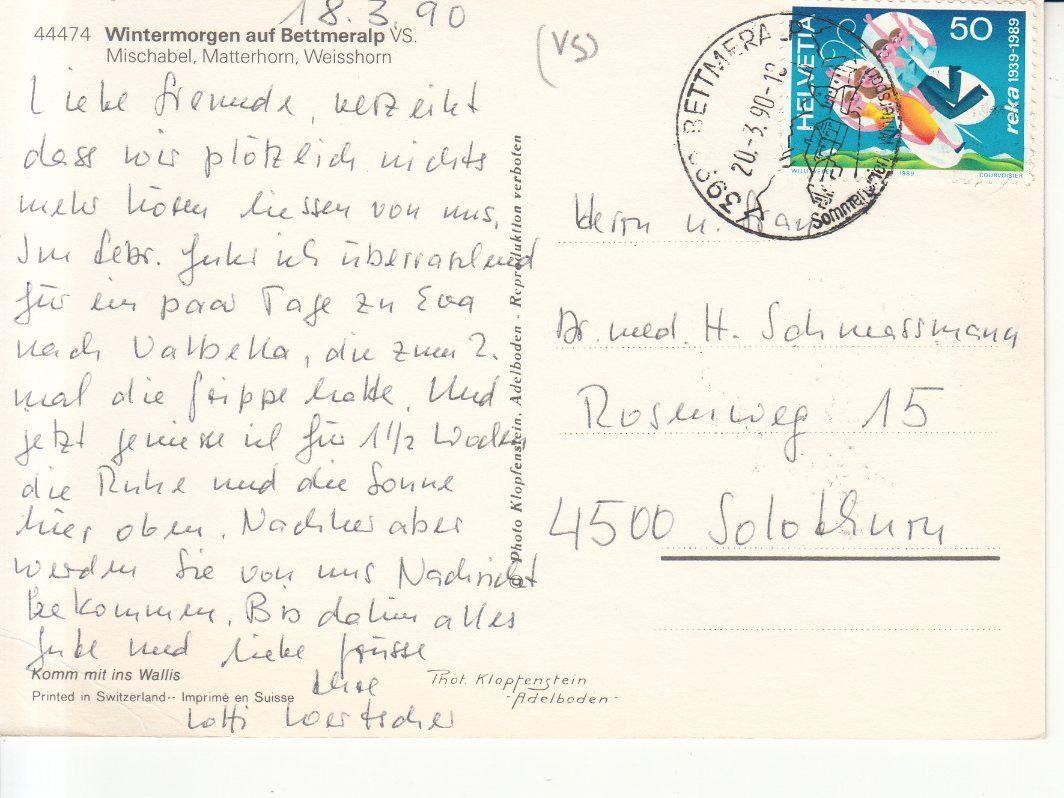 18.3.90
44474 Wintermorgen auf Bettmeralp VS.
Mischabel, Matterhorn, Weisshorn
(VS)
Liebe Freunde, verzeiht
dass wir plötzlich nichts
mehr hören liessen von uns.
Im Febr. fuhr ich überraschend
für ein paar Tage zu Eva
nach Valbella, die zum 2.
mal die Grippe hatte. Und
jetzt geniesse ich für 1 1/2 Wochen
die Ruhe und die Sonne
hier oben. Nachher aber
werden Sie von uns Nachricht
bekommen. Bis dahin alles
Gute und liebe Grüsse
Ihre
Lotti Loertscher
Komm mit ins Wallis
Printed in Switzerland -- Imprimé en Suisse
Phot. Klopfenstein
- Adelboden -
© Photo Klopfenstein, Adelboden - Reproduktion verboten
BETTMERALP
20.-3.90-18
Sommer
HELVETIA
50
reka 1939-1989
1989
COURVOISIER
Herrn u. Frau
Dr. med. H. Schmassmann
Rosenweg 15
4500 Solothurn